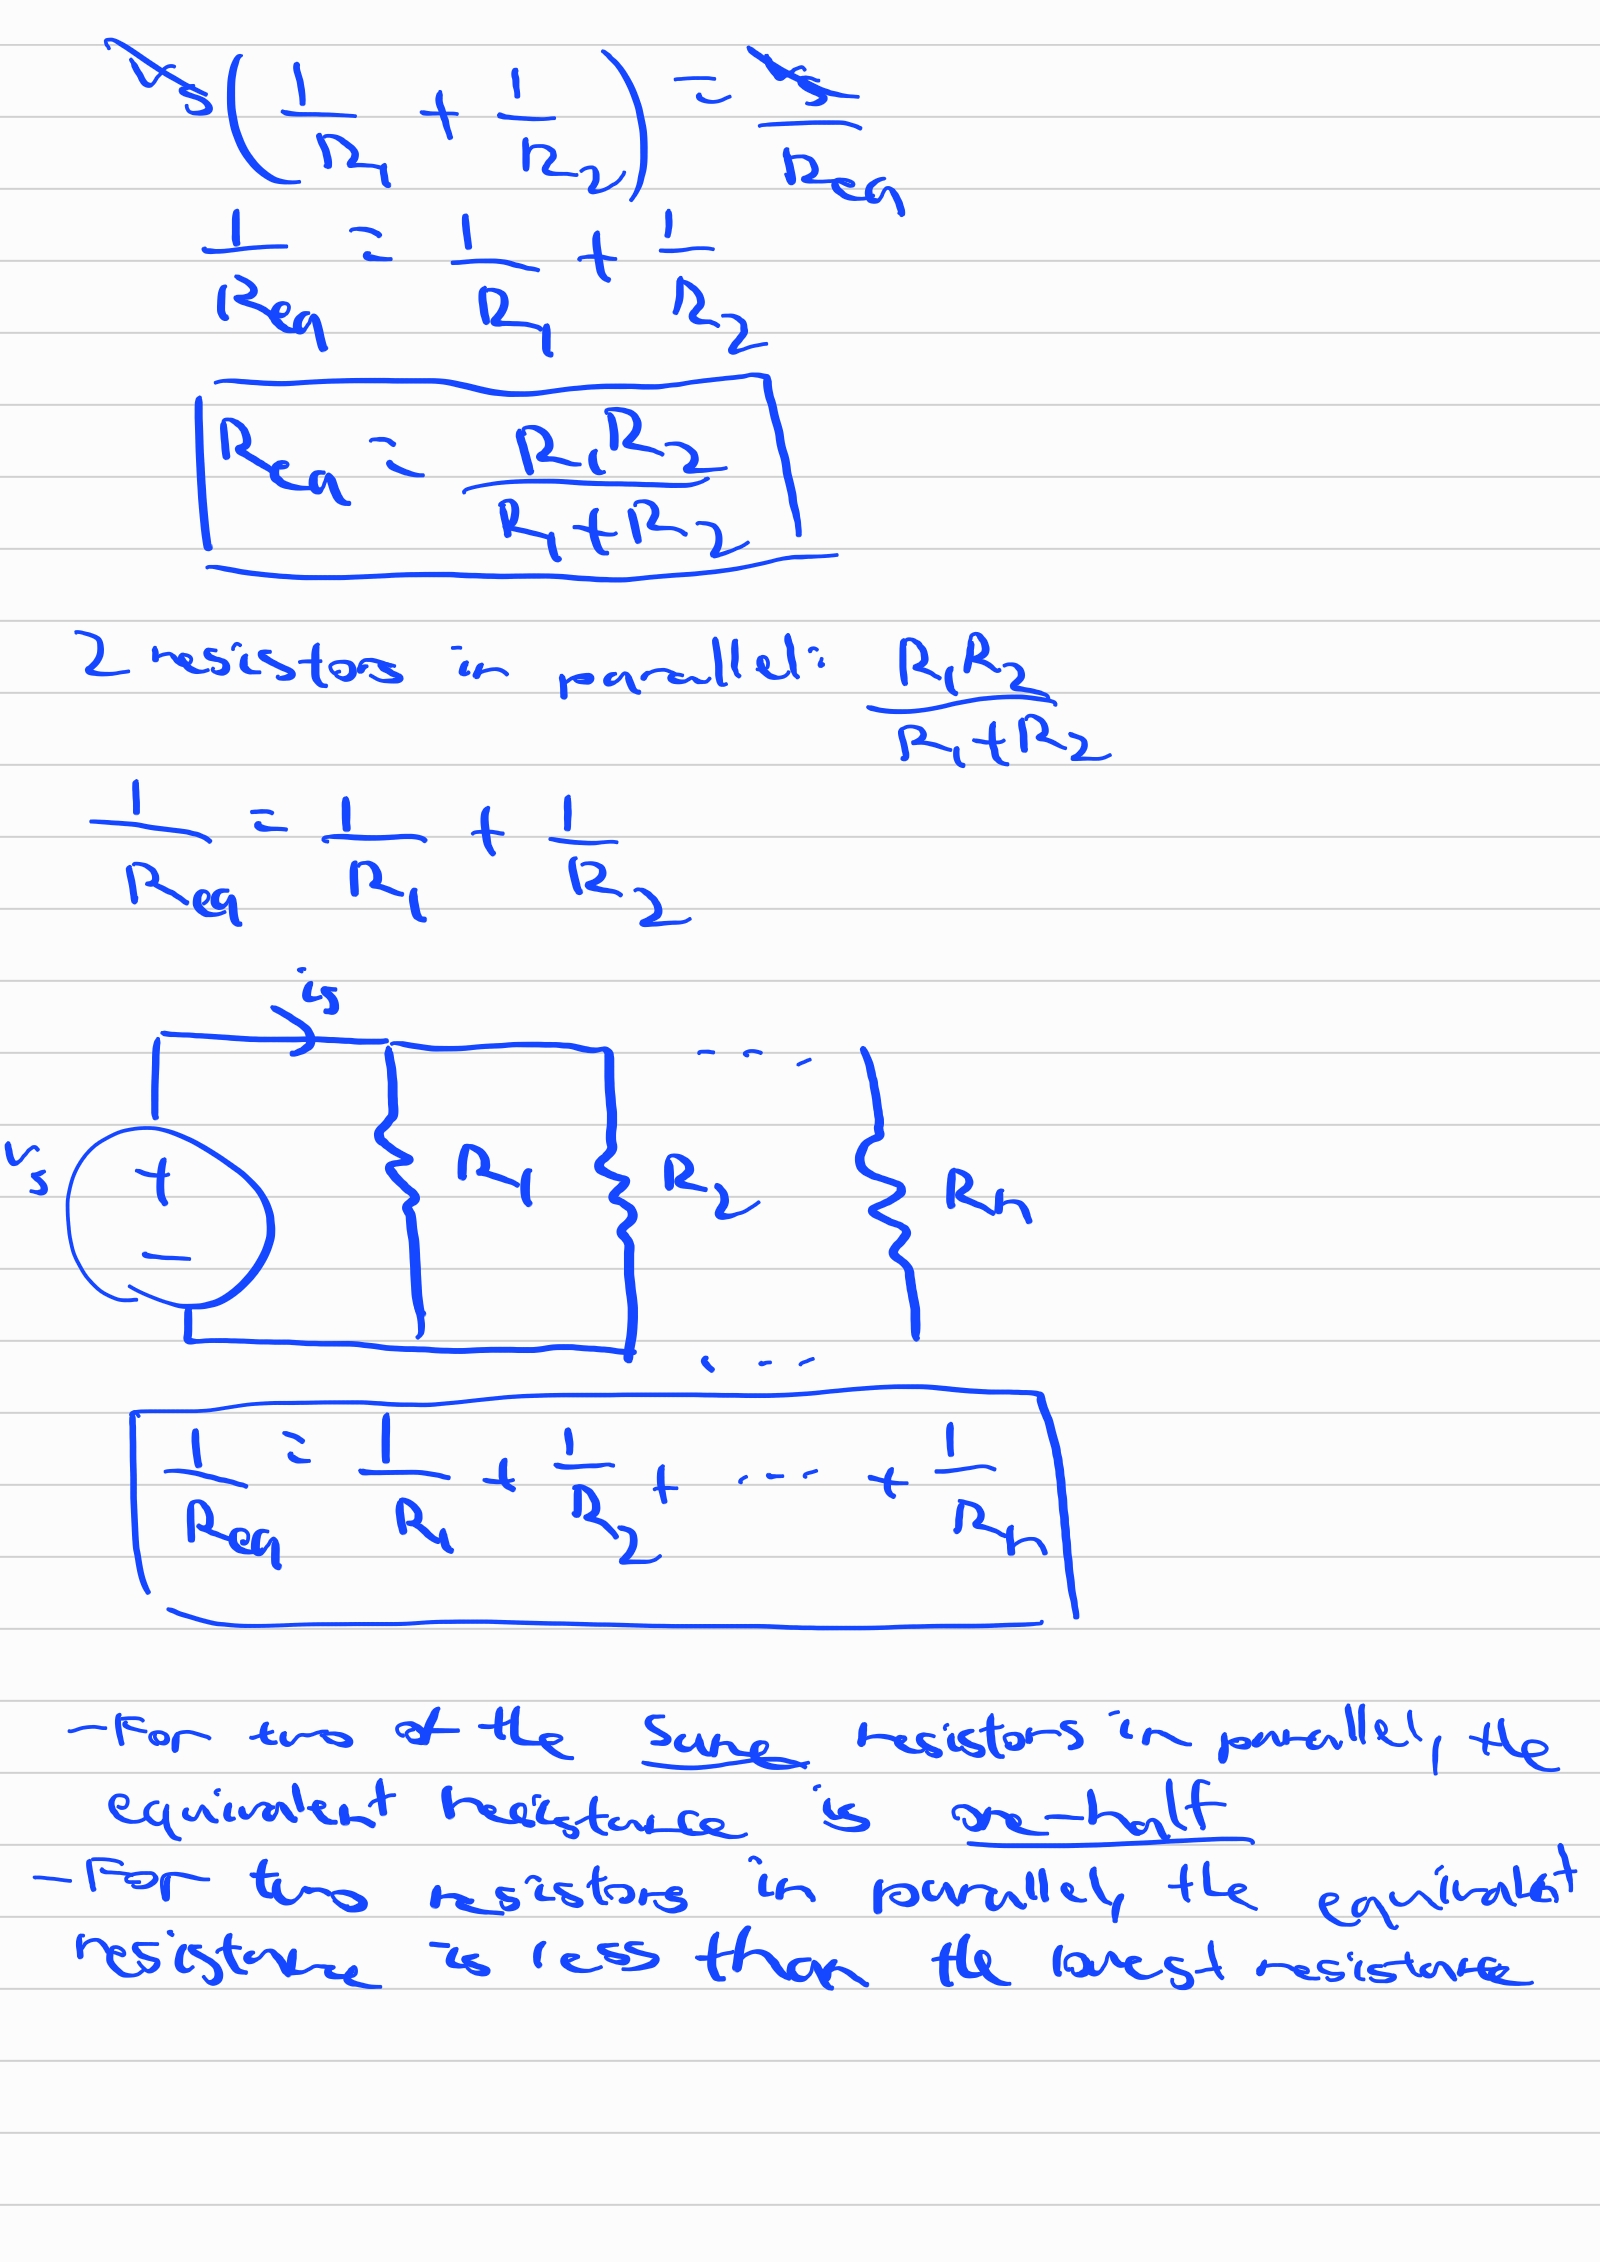 V_s (1/R_1 + 1/R_2) = V_s/R_eq
1/R_eq = 1/R_1 + 1/R_2
R_eq = R_1R_2/(R_1+R_2)
2 resistors in parallel: R_1R_2/(R_1+R_2)
1/R_eq = 1/R_1 + 1/R_2
i_s
V_s + - R_1 R_2 .... R_n
....
1/R_eq = 1/R_1 + 1/R_2 + .... + 1/R_n
-For two of the same resistors in parallel, the
equivalent resistance is one-half
-For two resistors in parallel, the equivalent
resistance is less than the lowest resistance